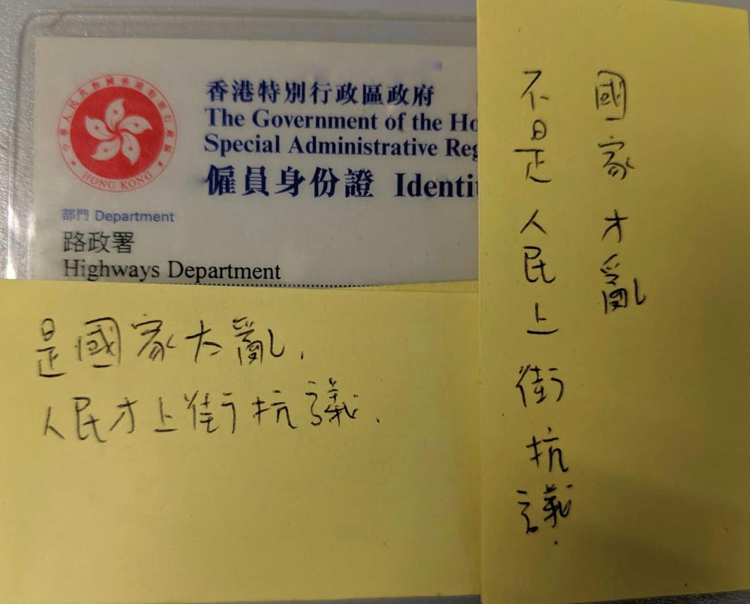 中華人民共和國香港特別行政區
HONG KONG
香港特別行政區政府
The Government of the Ho
Special Administrative Reg
僱員身份證 Identi
部門 Department
路政署
Highways Department
不是人民上街抗議.
國家才亂
是國家大亂,
人民才上街抗議.